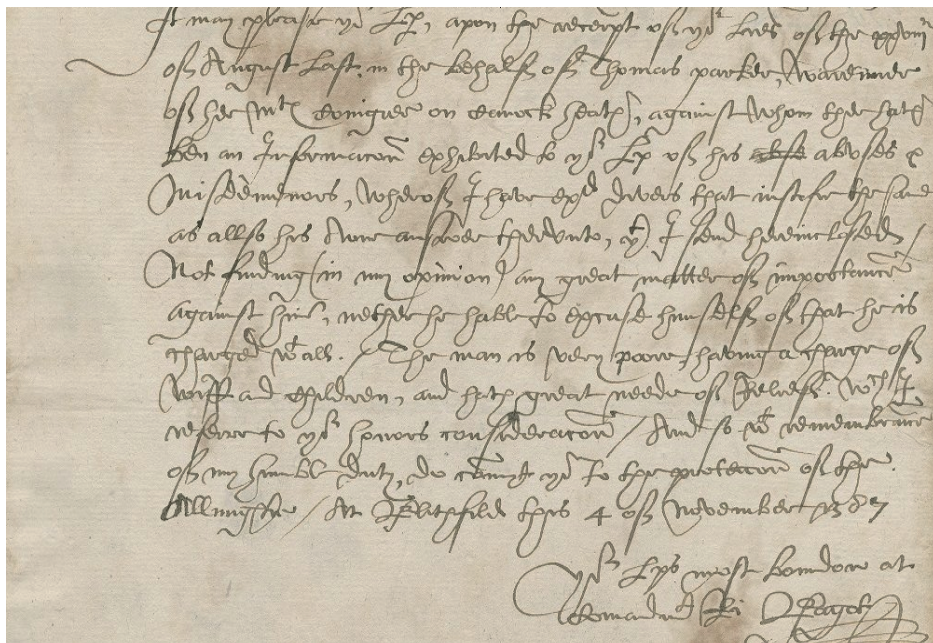 It may please yor Lp, apon the receipt of yor Lres of the xxviijth
of August last, in the behalf of Thomas parker, Wareiner
of her Mts Coingree on Canock heath, against whom ther hath
ben an Informacon exhibited to yor Lp of his abuse abvses &
Misdemenors, wherof I have exd divers that iustifie the same
as allso his owne answer thervnto, wch I send hereinclosed /
Not finding (in my opinion) any great matter of importance
against him, nether he hable to excuse himself of that he is
charged wt all. / The man is very poore, having a charge of
wiff and children, and hath great neede of Relief. Wch I
referre to yor honors consideracon / And so wt remembrance
of my humbl duty, do comyt yor to the proteccon of the
Allmightie / At Blithfild this 4 of November 1587
Yor Lps most bounden at
comandmt Ri Bagot